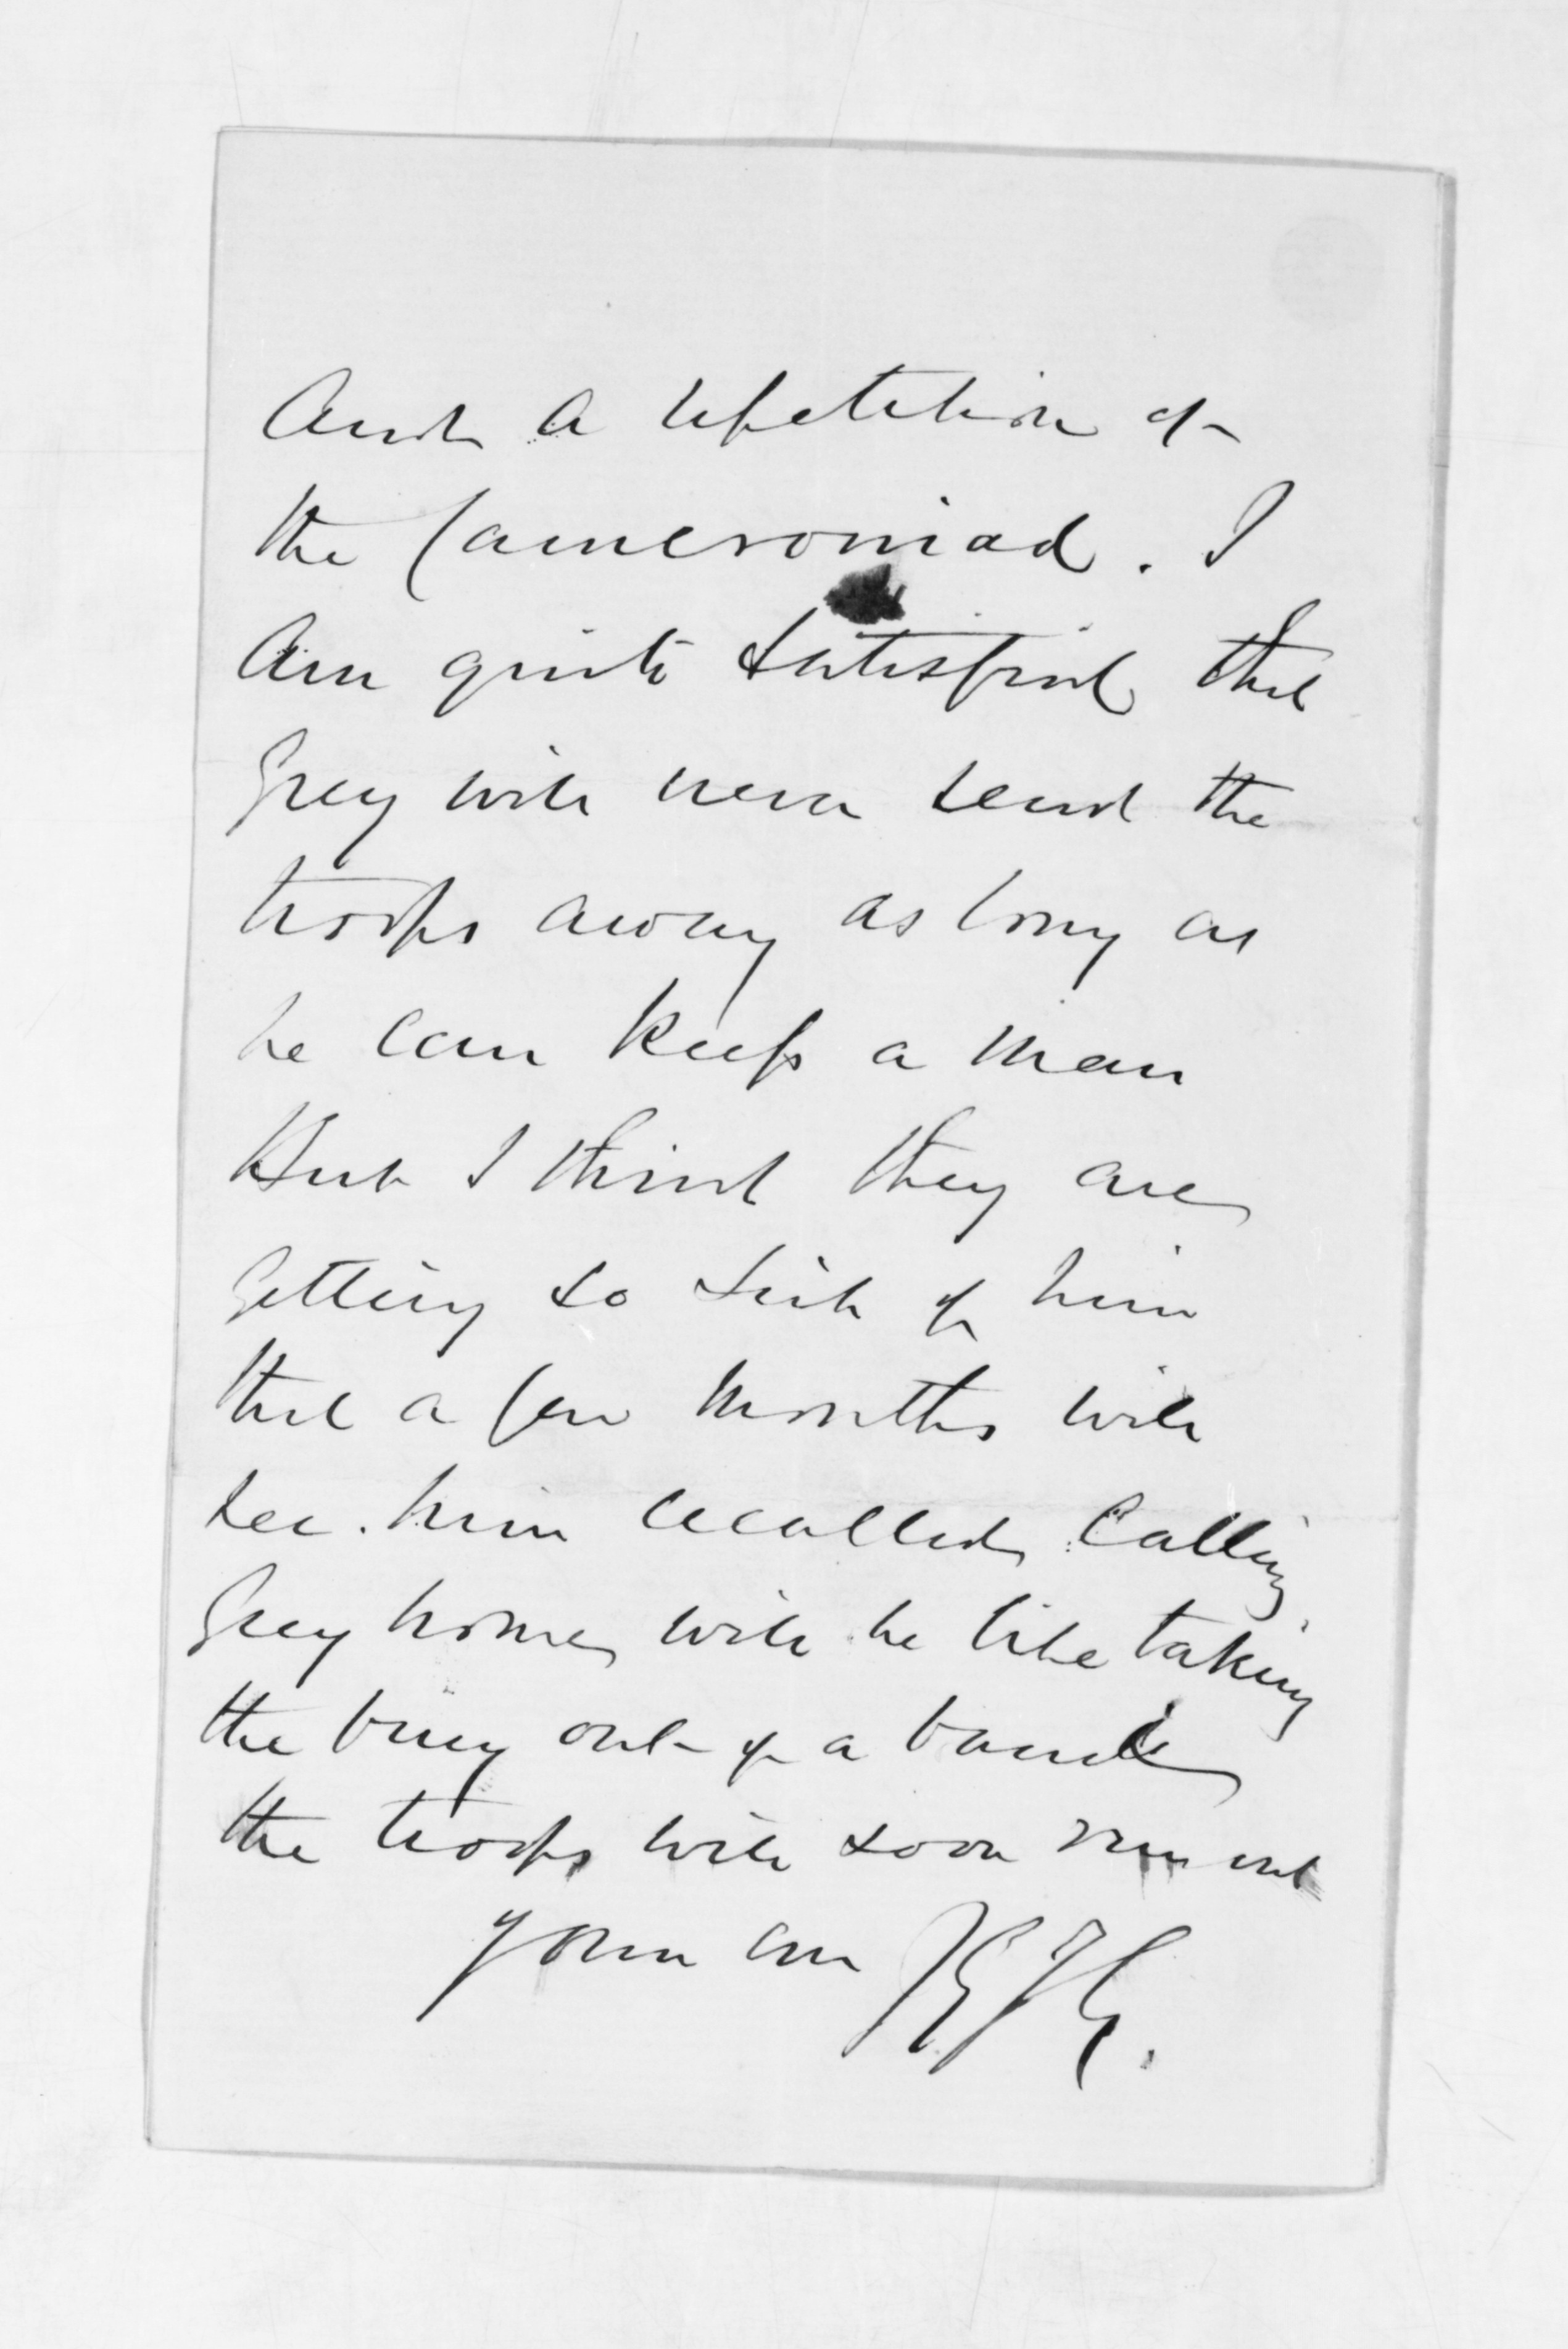 And a repetition of
the Cameroniad. I
Am quite satisfied that
Grey will never send the
troops away as long as
he can keep a man
But I think they are
getting so sick of him
that a few months will
see him recalled Calling
Grey home will be like taking
the bung out of a barrel
the troops will soon run out